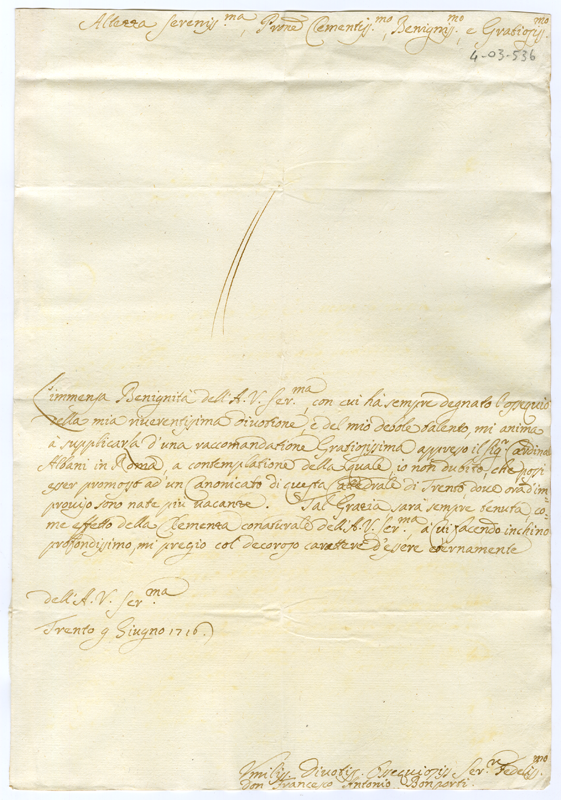 Altezza Sereniss.ma, Prone Clementiss.mo, Benigniss.mo, e Gratiosiss.mo
4-03-536
L'immensa Benignità dell'A. V. Ser.ma, con cui hà sempre degnato l'ossequio
della mia riverentissima divotione, e del mio debole talento, mi anima
à supplicarla d'una raccomandatione Gratiosissima appresso il Sig.r Cardinal
Albani in Roma, a contemplatione della quale, io non dubito, che possi
esser promosso ad un Canonicato di questa Cattedrale di Trento, dove ora d'im=
proviso sono nate più vacanze. Tal Grazia sarà sempre tenuta, co=
me effetto della Clemenza conaturale dell'A. V. Ser.ma, à cui facendo inchino
profondissimo, mi pregio col decoroso carattere d'essere eternamente
dell'A. V. Ser.ma
Trento 9 Giugno 1716.
Umiliss. Divotiss. Ossequiosiss. Ser.re Fedeliss.mo
Don Francesco Antonio Bonporti.